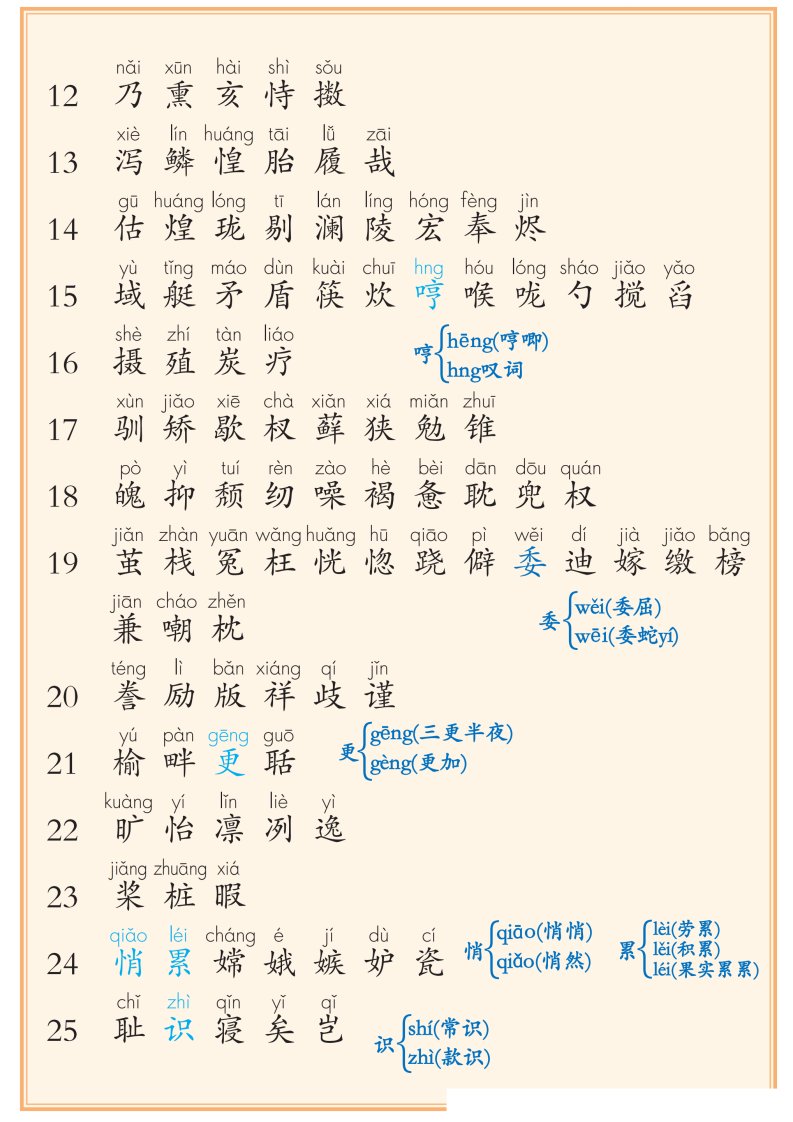 nǎi xūn hài shì sǒu
12 乃 熏 亥 恃 擞
xiè lín huáng tāi lǚ zāi
13 泻 鳞 惶 胎 履 哉
gū huáng lóng tī lán líng hóng fèng jìn
14 估 煌 珑 剔 澜 陵 宏 奉 烬
yù tǐng máo dùn kuài chuī hng hóu lóng sháo jiǎo yǎo
15 域 艇 矛 盾 筷 炊 哼 喉 咙 勺 搅 舀
shè zhí tàn liáo
16 摄 殖 炭 疗
哼 hēng(哼唧)
hng叹词
xùn jiǎo xiē chà xiǎn xiá miǎn zhuī
17 驯 矫 歇 杈 藓 狭 勉 锥
pò yì tuí rèn zào hè bèi dān dōu quán
18 魄 抑 颓 纫 噪 褐 惫 耽 兜 权
jiǎn zhàn yuān wǎng huǎng hū qiāo pì wěi dí jià jiǎo bǎng
19 茧 栈 冤 枉 恍 惚 跷 僻 委 迪 嫁 缴 榜
jiān cháo zhěn
兼 嘲 枕
委 wěi(委屈)
wēi(委蛇yí)
téng lì bǎn xiáng qí jǐn
20 誊 励 版 祥 歧 谨
yú pàn gēng guō
21 榆 畔 更 聒
更 gēng(三更半夜)
gèng(更加)
kuàng yí lǐn liè yì
22 旷 怡 凛 冽 逸
jiǎng zhuāng xiá
23 桨 桩 暇
qiǎo léi cháng é jí dù cí
24 悄 累 嫦 娥 嫉 妒 瓷
悄 qiāo(悄悄)
qiǎo(悄然)
累 lèi(劳累)
lěi(积累)
léi(果实累累)
chǐ zhì qǐn yǐ qǐ
25 耻 识 寝 矣 岂
识 shí(常识)
zhì(款识)